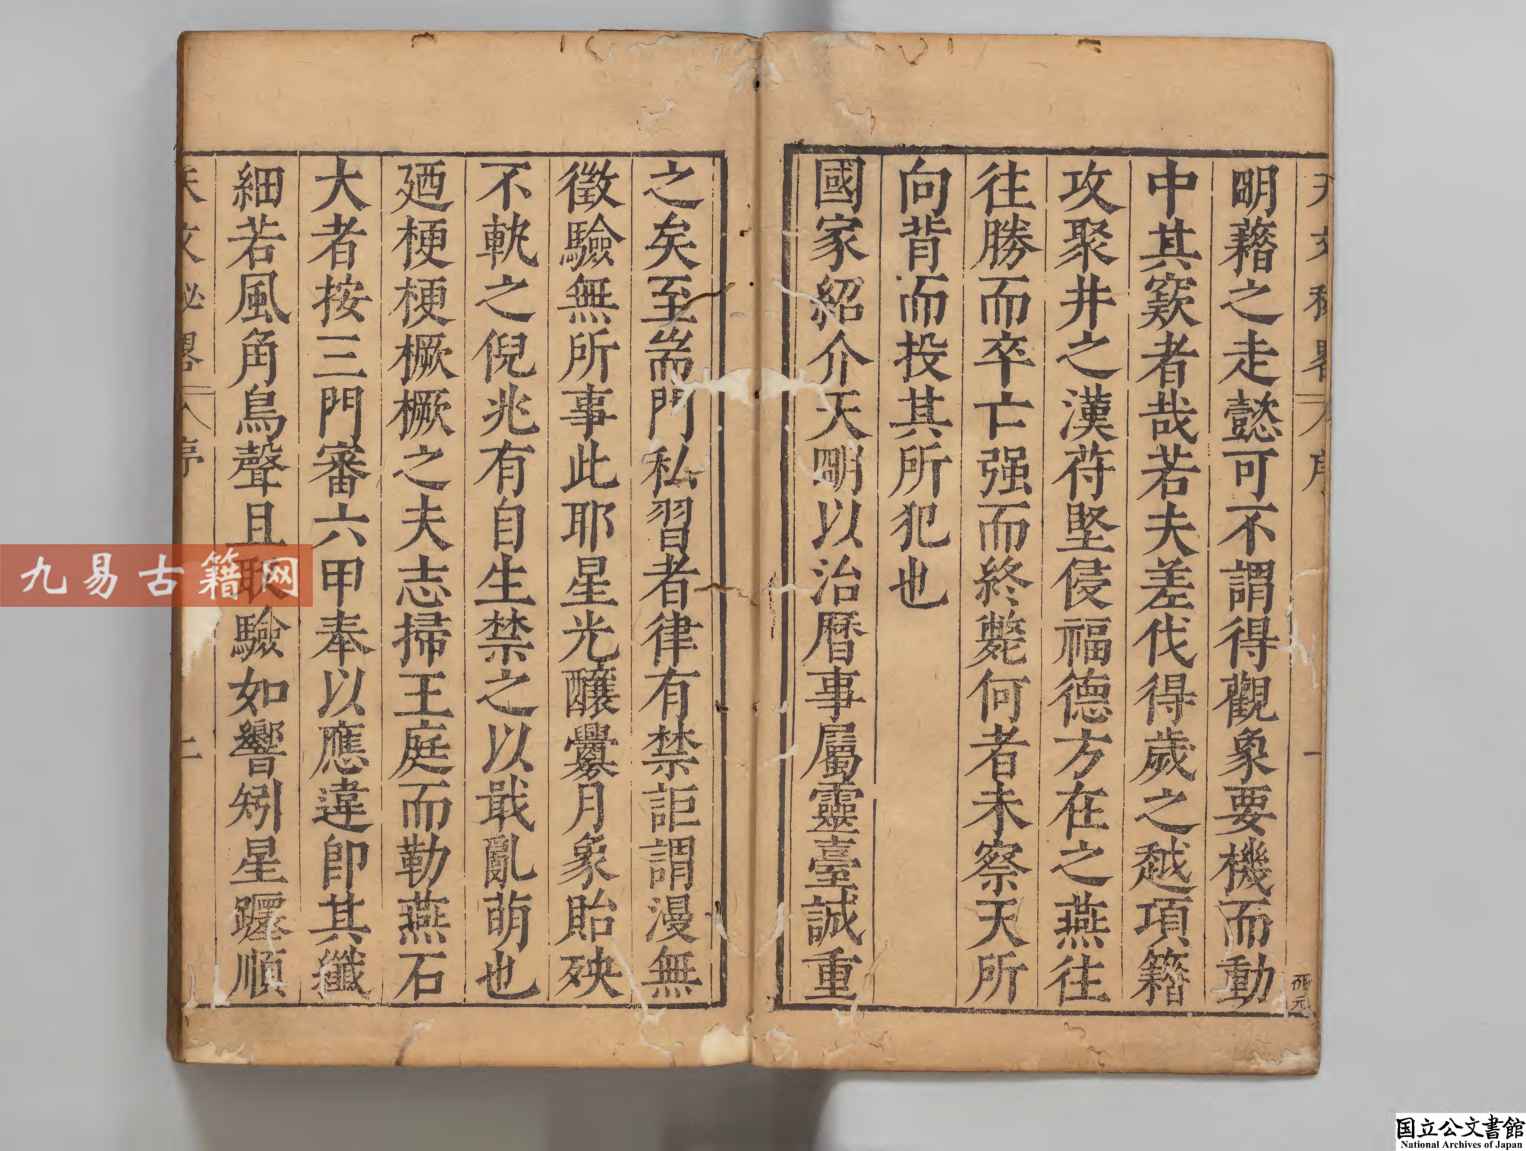 明籍之走懿可不謂得觀象要機而動
中其窾者哉若夫差伐得歲之越項籍
攻聚井之漢苻堅侵福德方在之燕往
往勝而卒亡强而終斃何者未察天所
向背而投其所犯也
國家紹介天明以治曆事屬靈臺誠重
之矣至耑門私習者律有禁詎謂漫無
徵驗無所事此耶星光釀釁月象貽殃
不軌之倪兆有自生禁之以戢亂萌也
廼梗梗橛橛之夫志掃王庭而勒燕石
大者按三門審六甲奉以應違卽其纖
細若風角鳥聲且取驗如響矧星躔順
天文秘畧 序 一
天文秘畧 序 二
九易古籍网
国立公文書館
National Archives of Japan